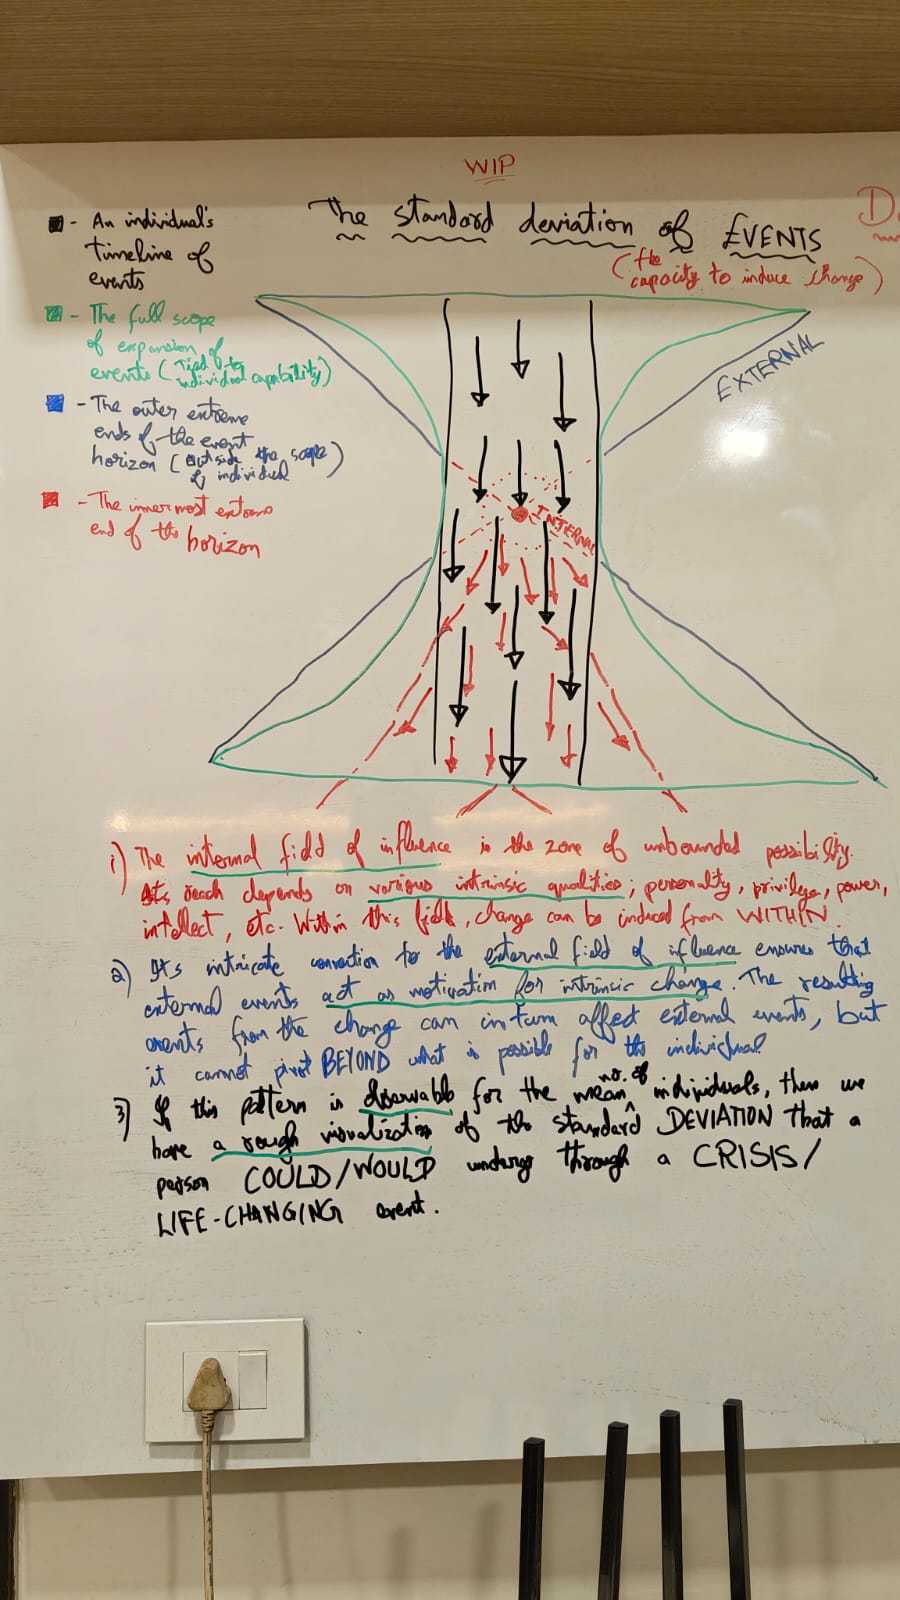 WIP
The standard deviation of EVENTS
(the capacity to induce change)
D
- An individual's
timeline of
events
- The full scope
of expansion of
events (Tied to
individual capability)
- The outer extreme
ends of the event
horizon (outside the scope
of individual)
- The innermost extreme
end of the horizon
EXTERNAL
INTERNAL
1) The internal field of influence is the zone of unbounded possibility.
Its reach depends on various intrinsic qualities; personality, privilege, power,
intellect, etc. Within this field, change can be induced from WITHIN.
2) Its intricate connection to the external field of influence ensures that
external events act as motivation for intrinsic change. The resulting
events from the change can in turn affect external events, but
it cannot pivot BEYOND what is possible for the individual.
3) If this pattern is observable for the mean no. of individuals, then we
have a rough visualization of the standard DEVIATION that a
person COULD/WOULD undergo through a CRISIS/
LIFE-CHANGING event.